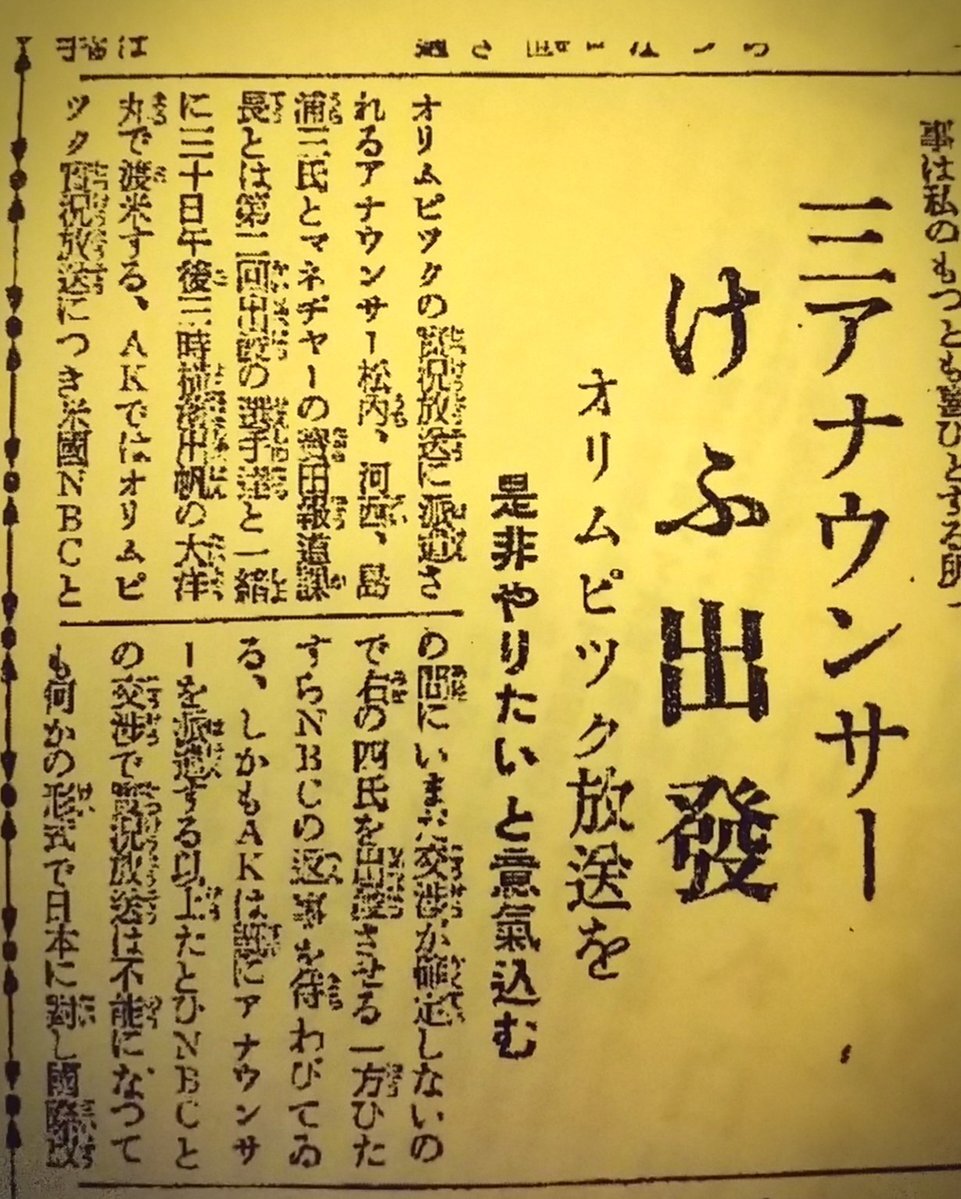 事は私のもつとも
三アナウンサー
けふ出發
オリムピック放送を
是非やりたいと意氣込む
オリムピツクの實況放送に派遣さ
れるアナウンサー松内、河西、島
浦三氏とマネヂヤーの 田報道課
長とは第二回出發の選手達と一緒
に三十日午後三時横濱出帆の大洋
丸で渡米する、AKではオリムピ
ツク實況放送につき米國NBCと
の間にいまだ交渉が確定しないの
で右の四氏を出發させる一方ひた
すらNBCの返事を待わびてゐ
る、しかもAKは既にアナウンサ
ーを派遣する以上たとひNBCと
の交渉で實況放送は不能になつて
も何かの形式で日本に對し國際放